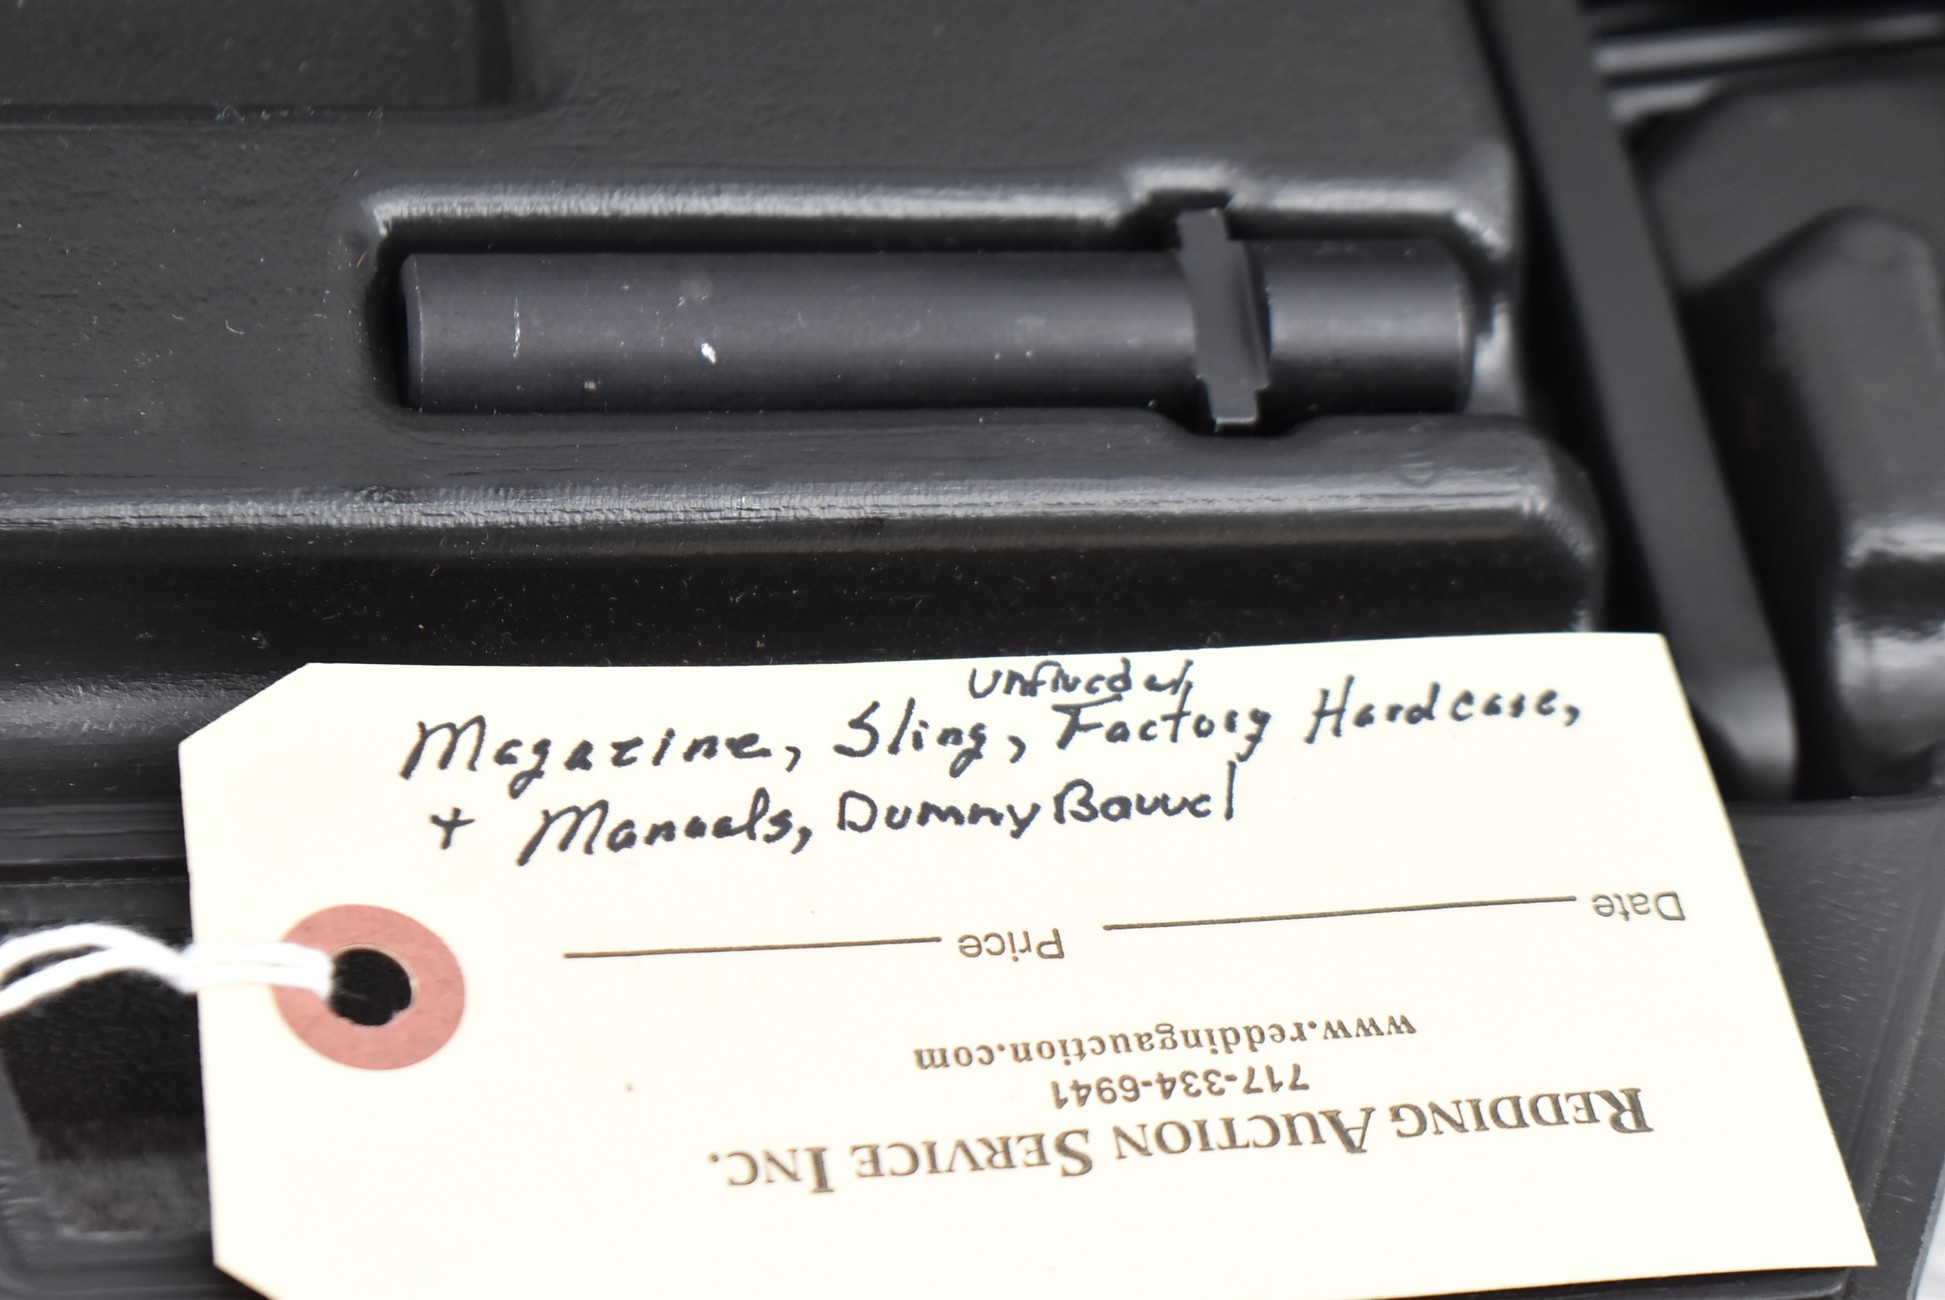 Unfired w/
Magazine, Sling, Factory Hardcase,
+ Manuals, Dummy Barrel
REDDING AUCTION SERVICE INC.
717-334-6941
www.reddingauction.com
Date Price